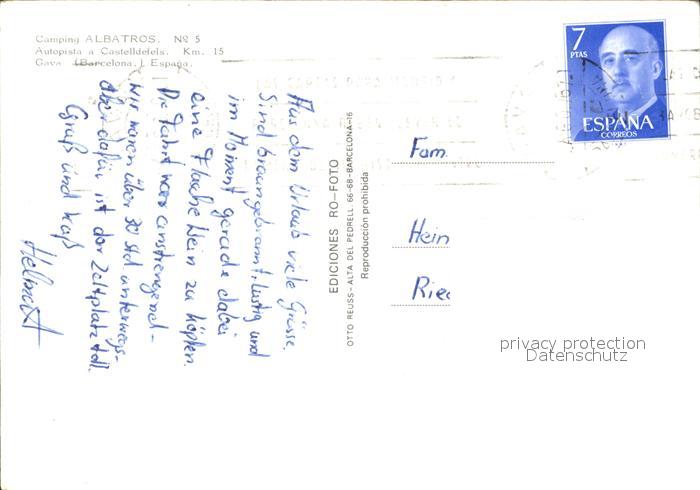 Camping ALBATROS. Nº 5
Autopista a Castelldefels. Km. 15
Gava (Barcelona.) España.
7
PTAS
ESPAÑA
CORREOS
Aus dem Urlaub viele Grüsse.
Sind braungebrannt, lustig und
im Moment gerade dabei
eine Flache Wein zu köpfen.
Die Fahrt war anstrengend -
Wir waren über 30 Std. unterwegs-
aber dafür ist der Zeltplatz toll.
Gruß und Kuß
Helmut
EDICIONES RO-FOTO
OTTO REUSS-ALTA DEL PEDRELL, 66-68-BARCELONA-16
Reproducción prohibida
Fam.
Hein
Ried
privacy protection
Datenschutz